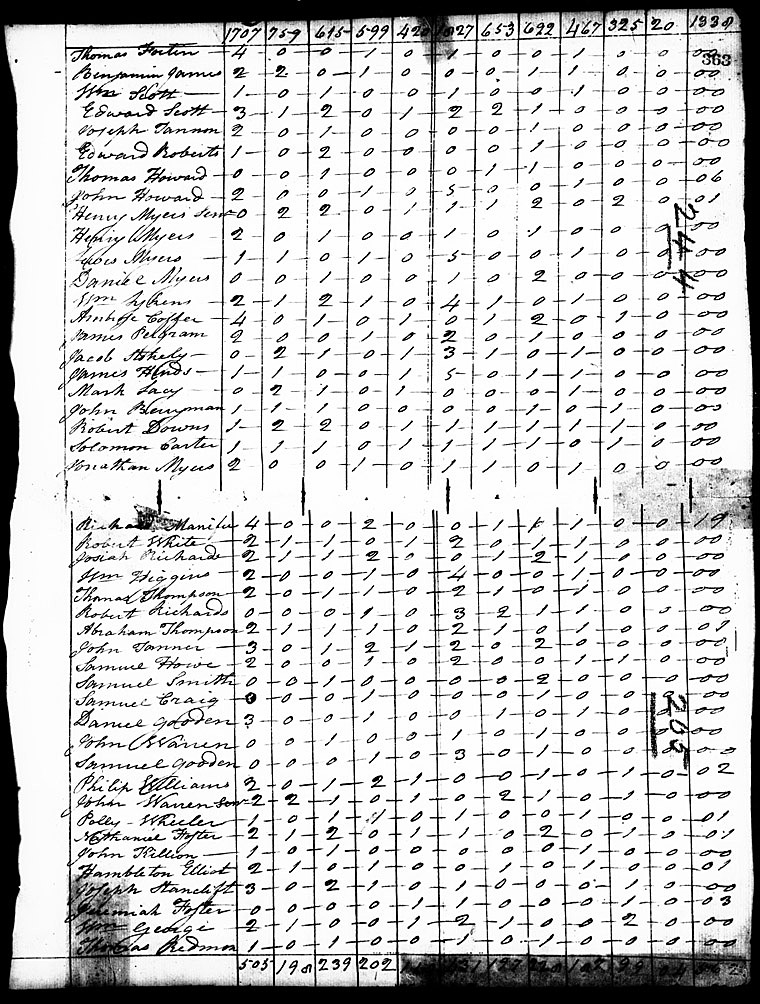 1707 759 615 599 420 1027 653 692 467 325 20 1338
363
Thomas Foster 4 0 0 1 0 1 0 0 1 0 0 00
Benjamin James 2 2 0 1 0 0 0 1 1 0 0 00
Wm Scott 1 0 1 0 0 1 0 1 0 0 0 00
Edward Scott 3 1 2 0 1 2 2 1 0 0 0 00
Joseph Tannon 2 0 1 0 0 0 0 1 0 0 0 00
Edward Roberts 1 0 2 0 0 0 0 1 0 0 0 00
Thomas Howard 0 0 1 0 0 0 1 1 0 0 0 00
John Howard 2 0 0 1 0 5 0 0 1 0 0 06
Henry Myers Senr 0 2 2 0 1 1 1 2 0 2 0 01
244
Henry Myers 2 0 1 0 0 1 0 1 0 0 0 00
Myers 1 1 0 1 0 5 0 0 1 0 0 00
Daniel Myers 0 0 1 0 0 1 0 2 0 0 0 00
Wm 2 1 2 1 0 4 1 0 1 0 0 00
Ambrose Coffer 4 0 1 0 1 0 1 2 0 1 0 00
James Pelgram 2 0 0 1 0 2 0 1 0 0 0 00
Jacob 0 2 1 0 1 3 1 0 1 0 0 00
James Hinds 1 1 0 1 0 5 0 1 0 0 0 00
Mark Lacy 0 2 1 0 1 0 0 0 1 0 0 00
John Berryman 1 1 1 0 0 0 0 1 0 1 0 00
Robert Downs 1 2 2 0 1 1 1 1 1 1 0 00
Solomon Carter 1 1 1 0 1 1 1 1 0 1 0 00
Jonathan Myers 2 0 0 1 0 1 1 0 1 0 0 00
Richard 4 0 0 2 0 0 1 1 1 0 0 19
Robert White 2 1 1 0 1 2 0 1 0 0 0 00
Josiah Richards 2 1 1 2 0 0 1 2 1 0 0 00
Wm Higgins 2 0 0 1 0 4 0 0 1 0 0 00
Thomas Thompson 2 0 1 0 0 2 1 0 1 0 0 00
Robert Richards 0 0 0 1 0 3 2 1 1 0 0 00
Abraham Thompson 2 1 1 1 0 2 1 0 1 0 0 01
John Tanner 3 0 1 2 1 2 0 2 0 0 0 00
Samuel Howe 2 0 0 1 0 2 0 0 1 1 0 00
Samuel Smith 0 0 1 0 0 0 0 2 0 0 0 00
Samuel Craig 0 0 0 1 0 0 0 1 0 0 0 00
Daniel Gooden 3 0 0 1 0 0 1 0 1 0 0 00
205
John Warren 0 0 1 0 0 1 0 1 0 0 0 00
Samuel Gooden 0 0 0 1 0 3 0 1 0 0 0
Philip Williams 2 0 1 2 1 0 1 0 1 0 0 02
John Warren Senr 2 2 1 0 1 0 2 1 0 1 0 00
Polly Wheeler 1 0 1 1 0 1 0 1 0 0 0 01
Nathaniel Foster 2 1 2 0 0 1 0 2 0 0 0 01
John Killion 1 0 1 0 0 1 0 1 0 0 0 00
Hambleton Elliot 2 1 0 1 0 0 1 0 1 0 0 01
Joseph Stanclift 3 0 2 1 0 1 0 0 0 1 0 00
Jeremiah Foster 0 0 0 0 1 0 0 1 0 0 0 03
Wm George 2 1 0 1 0 2 1 0 0 2 0 00
Thomas Redmon 1 0 1 0 0 1 0 1 0 0 0 00
505 198 239 202